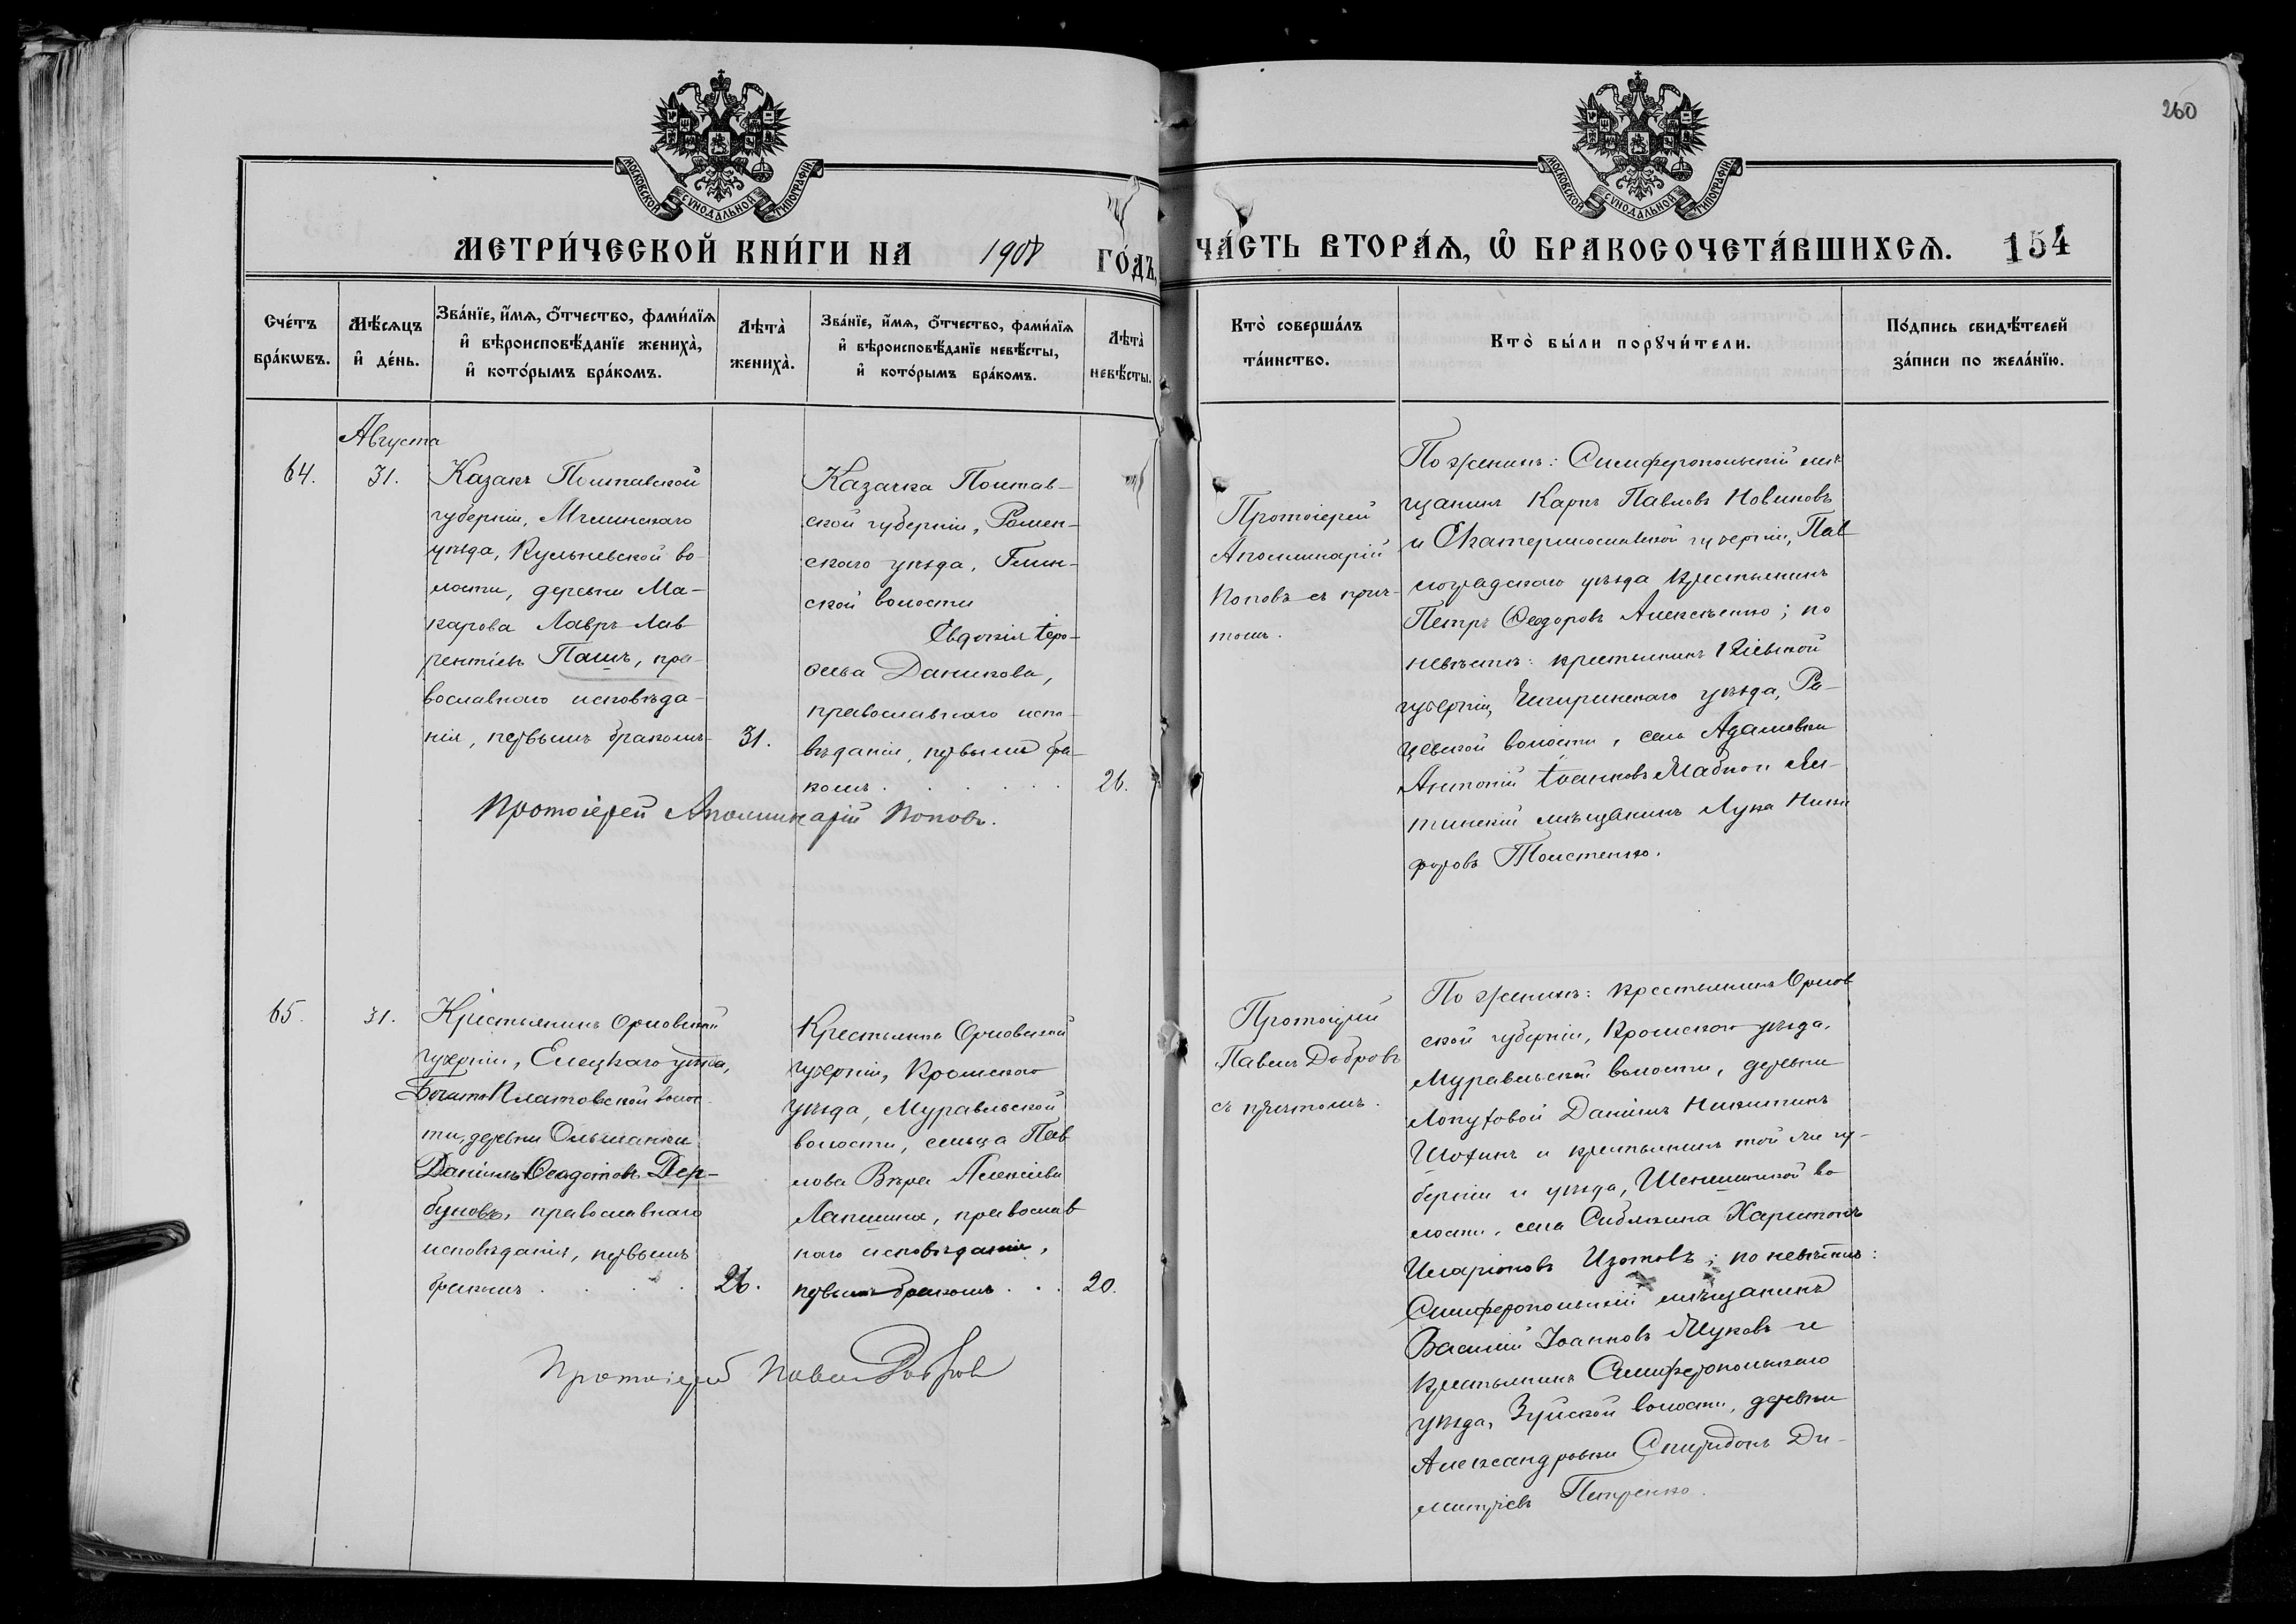 260
МОСКОВСКОЙ СѴНОДАЛЬНОЙ ТИПОГРАФІИ
МОСКОВСКОЙ СѴНОДАЛЬНОЙ ТИПОГРАФІИ
МЕТРИ́ЧЕСКОЙ КНИ́ГИ НА 1908 ГО́ДЪ.
ЧА́СТЬ ВТОРА́Ѧ, Ѽ БРАКОСОЧЕТА́ВШИХСѦ. 154
Сче́тъ
бра́кѡвъ.
Мѣ́сѧцъ
и҆ де́нь.
Зва́нїе, и҆́мѧ, ѻ҆́тчество, фами́лїѧ
и҆ вѣроисповѣ́данїе жениха̀,
и҆ кото́рымъ бра́комъ.
Лѣта̀
жениха̀.
Зва́нїе, и҆́мѧ, ѻ҆́тчество, фами́лїѧ
и҆ вѣроисповѣ́данїе невѣ́сты,
и҆ кото́рымъ бра́комъ.
Лѣта̀
невѣ́сты.
Кто̀ соверша́лъ
та́инство.
Кто̀ бы́ли порꙋчи́тели.
По́дпись свидѣ́телей
за́писи по жела́нїю.
Августа
64.
31.
Казакъ Полтавской
губерніи, Мглинскаго
уѣзда, Кульневской во-
лости, деревни Ма-
карова Лавръ Лав
рентіевъ Пашъ, пра-
вославнаго исповѣда-
нія, первымъ бракомъ
31.
Казачка Полтав-
ской губерніи, Ромен-
скаго уѣзда, Глин-
ской волости
Евдокія Іеро-
ѳеева Даникова,
православнаго испо-
вѣданія, первымъ бра-
комъ
26.
Протоіерей Аполлинарій Поповъ.
Протоіерей
Аполлинарій
Поповъ съ прич-
томъ.
По женихѣ: Симферопольскій мѣ-
щанинъ Карпъ Павловъ Новиковъ
и Екатеринославской губерніи, Пав
лоградскаго уѣзда крестьянинъ
Петръ Ѳеодоровъ Алексѣенко; по
невѣстѣ: крестьянинъ Кіевской
губерніи, Чигиринскаго уѣзда, Ра-
цевской волости, села Адамовки
Антоній Іоанновъ и Ля-
тинскій мѣщанинъ Лука Ники
форовъ Толстенко.
65.
31.
Крестьянинъ Орловской
губерніи, Елецкаго уѣзда,
Богато Платовской волос
ти, деревни Ольшанки
Даніилъ Ѳедотовъ Дер-
буновъ, православнаго
исповѣданія, первымъ
бракомъ
26.
Крестьянка Орловской
губерніи, Кромскаго
уѣзда, Муравльской
волости, сельца Пав
лова Вѣра Алексіева
Лапшина, православ
наго исповѣданія,
первымъ бракомъ
20.
Протоіерей Павелъ Добровъ
Протоіерей
Павелъ Добровъ
съ причтомъ.
По женихѣ: крестьянинъ Орлов
ской губерніи, Кромскаго уѣзда,
Муравльской волости, деревни
Лопуховой Даніилъ Никитинъ
Шохинъ и крестьянинъ той же гу-
берніи и уѣзда, Шеншинской во
лости, села Сибякина Харитонъ
Иларіоновъ Изотовъ; по невѣстѣ:
Симферопольскій мѣщанинъ
Василій Іоанновъ Жуковъ и
крестьянинъ Симферопольскаго
уѣзда, Зуйской волости, деревни
Александровки Спиридонъ Ди-
митріевъ Петренко.